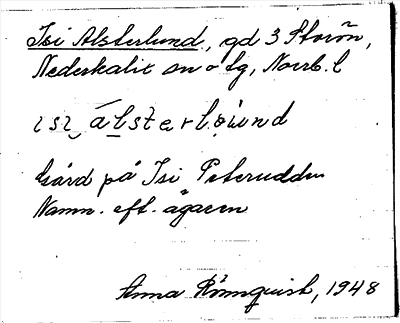 Isi Alsterlund, gd 3 Storön,
Nederkalix sn o tg, Norrb. l
ɩsɩ̮ álsterlo̤ẁnd
Gård på Isi Peterudden
Namn. eft. ägaren
Anna Rönnquist, 1948